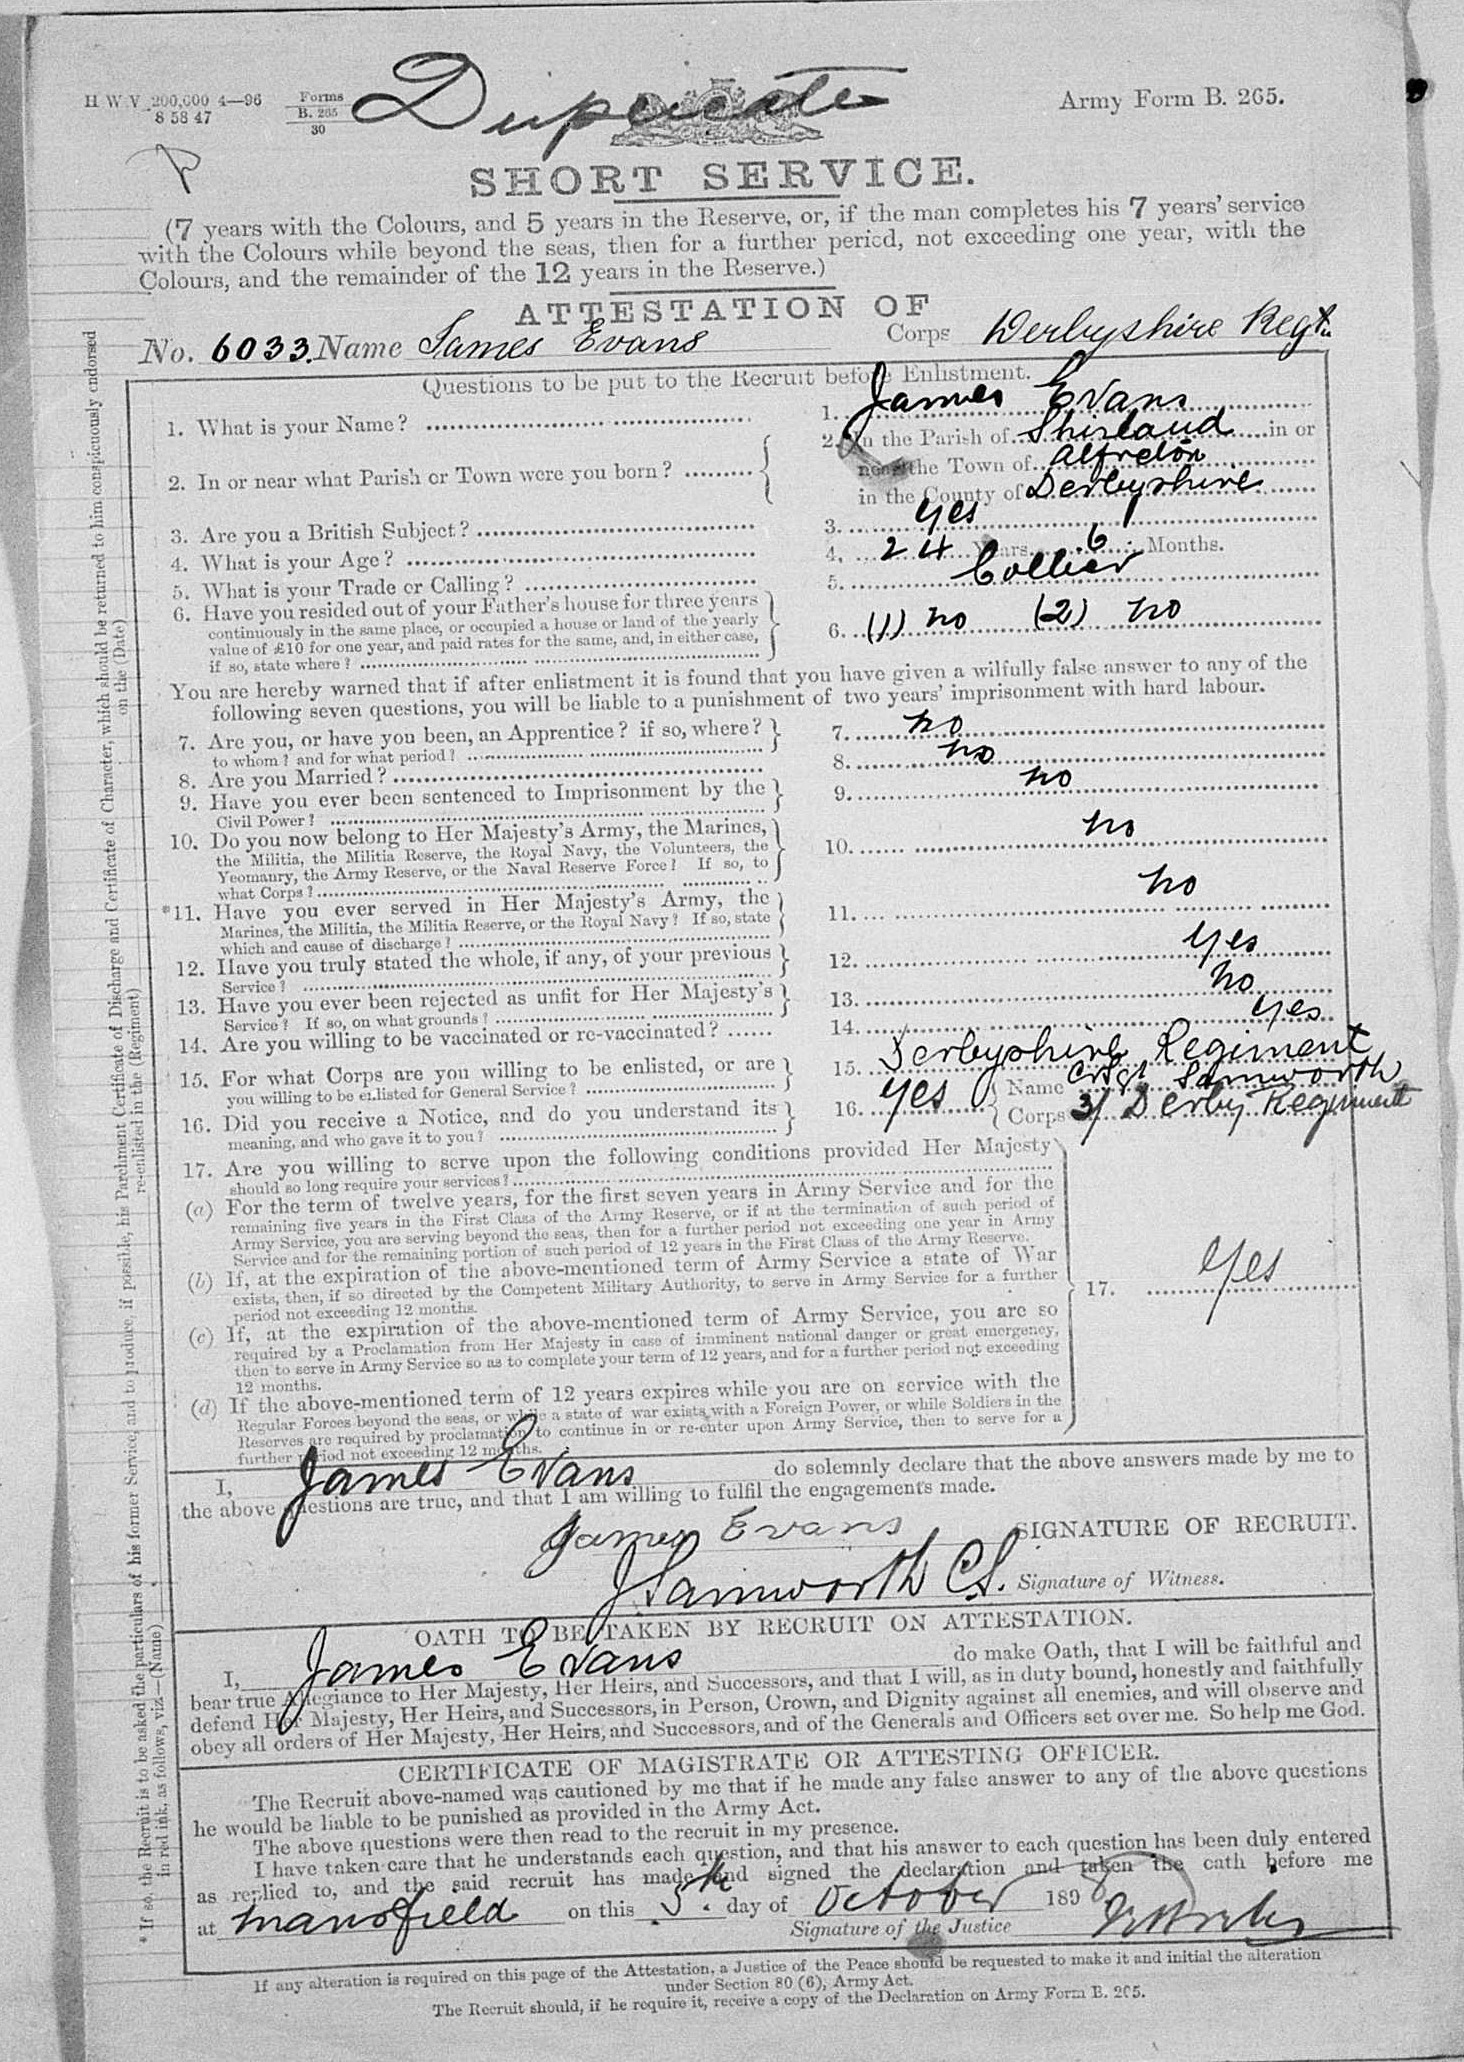 H W V 200,000 4—96
8 58 47
Forms
B. 265
30
Duplicate
Army Form B. 265.
SHORT SERVICE.
(7 years with the Colours, and 5 years in the Reserve, or, if the man completes his 7 years' service
with the Colours while beyond the seas, then for a further period, not exceeding one year, with the
Colours, and the remainder of the 12 years in the Reserve.)
ATTESTATION OF
No. 6033. Name James Evans Corps Derbyshire Regt.
Questions to be put to the Recruit before Enlistment.
1. What is your Name? 1. James Evans
2. In or near what Parish or Town were you born? 2. In the Parish of Shirland in or
near the Town of Alfreton
in the County of Derbyshire
3. Are you a British Subject? 3. Yes
4. What is your Age? 4. 24 Years 6 Months.
5. What is your Trade or Calling? 5. Collier
6. Have you resided out of your Father's house for three years
continuously in the same place, or occupied a house or land of the yearly
value of £10 for one year, and paid rates for the same, and, in either case,
if so, state where? 6. (1) no (2) no
You are hereby warned that if after enlistment it is found that you have given a wilfully false answer to any of the
following seven questions, you will be liable to a punishment of two years' imprisonment with hard labour.
7. Are you, or have you been, an Apprentice? if so, where?
to whom? and for what period? 7. no
8. Are you Married? 8. no
9. Have you ever been sentenced to Imprisonment by the
Civil Power? 9. no
10. Do you now belong to Her Majesty's Army, the Marines,
the Militia, the Militia Reserve, the Royal Navy, the Volunteers, the
Yeomanry, the Army Reserve, or the Naval Reserve Force? If so, to
what Corps? 10. no
*11. Have you ever served in Her Majesty's Army, the
Marines, the Militia, the Militia Reserve, or the Royal Navy? If so, state
which and cause of discharge? 11. no
12. Have you truly stated the whole, if any, of your previous
Service? 12. Yes
13. Have you ever been rejected as unfit for Her Majesty's
Service? If so, on what grounds? 13. No
14. Are you willing to be vaccinated or re-vaccinated? 14. Yes
15. For what Corps are you willing to be enlisted, or are
you willing to be enlisted for General Service? 15. Derbyshire Regiment
16. Did you receive a Notice, and do you understand its
meaning, and who gave it to you? 16. Yes Name C/Sgt Samworth
Corps 3/ Derby Regiment
17. Are you willing to serve upon the following conditions provided Her Majesty
should so long require your services?
(a) For the term of twelve years, for the first seven years in Army Service and for the
remaining five years in the First Class of the Army Reserve, or if at the termination of such period of
Army Service, you are serving beyond the seas, then for a further period not exceeding one year in Army
Service and for the remaining portion of such period of 12 years in the First Class of the Army Reserve.
(b) If, at the expiration of the above-mentioned term of Army Service a state of War
exists, then, if so directed by the Competent Military Authority, to serve in Army Service for a further
period not exceeding 12 months.
17. Yes
(c) If, at the expiration of the above-mentioned term of Army Service, you are so
required by a Proclamation from Her Majesty in case of imminent national danger or great emergency,
then to serve in Army Service so as to complete your term of 12 years, and for a further period not exceeding
12 months.
(d) If the above-mentioned term of 12 years expires while you are on service with the
Regular Forces beyond the seas, or while a state of war exists with a Foreign Power, or while Soldiers in the
Reserves are required by proclamation to continue in or re-enter upon Army Service, then to serve for a
further period not exceeding 12 months.
I, James Evans do solemnly declare that the above answers made by me to
the above questions are true, and that I am willing to fulfil the engagements made.
James Evans SIGNATURE OF RECRUIT.
J Samworth C.S. Signature of Witness.
OATH TO BE TAKEN BY RECRUIT ON ATTESTATION.
I, James Evans do make Oath, that I will be faithful and
bear true Allegiance to Her Majesty, Her Heirs, and Successors, and that I will, as in duty bound, honestly and faithfully
defend Her Majesty, Her Heirs, and Successors, in Person, Crown, and Dignity against all enemies, and will observe and
obey all orders of Her Majesty, Her Heirs, and Successors, and of the Generals and Officers set over me. So help me God.
CERTIFICATE OF MAGISTRATE OR ATTESTING OFFICER.
The Recruit above-named was cautioned by me that if he made any false answer to any of the above questions
he would be liable to be punished as provided in the Army Act.
The above questions were then read to the recruit in my presence.
I have taken care that he understands each question, and that his answer to each question has been duly entered
as replied to, and the said recruit has made and signed the declaration and taken the oath before me
at Mansfield on this 5th day of October 1898
Signature of the Justice
If any alteration is required on this page of the Attestation, a Justice of the Peace should be requested to make it and initial the alteration
under Section 80 (6), Army Act.
The Recruit should, if he require it, receive a copy of the Declaration on Army Form B. 265.
* If so, the Recruit is to be asked the particulars of his former Service, and to produce, if possible, his Parchment Certificate of Discharge and Certificate of Character, which should be returned to him conspicuously endorsed
in red ink, as follows, viz—(Name) re-enlisted in the (Regiment) on the (Date)